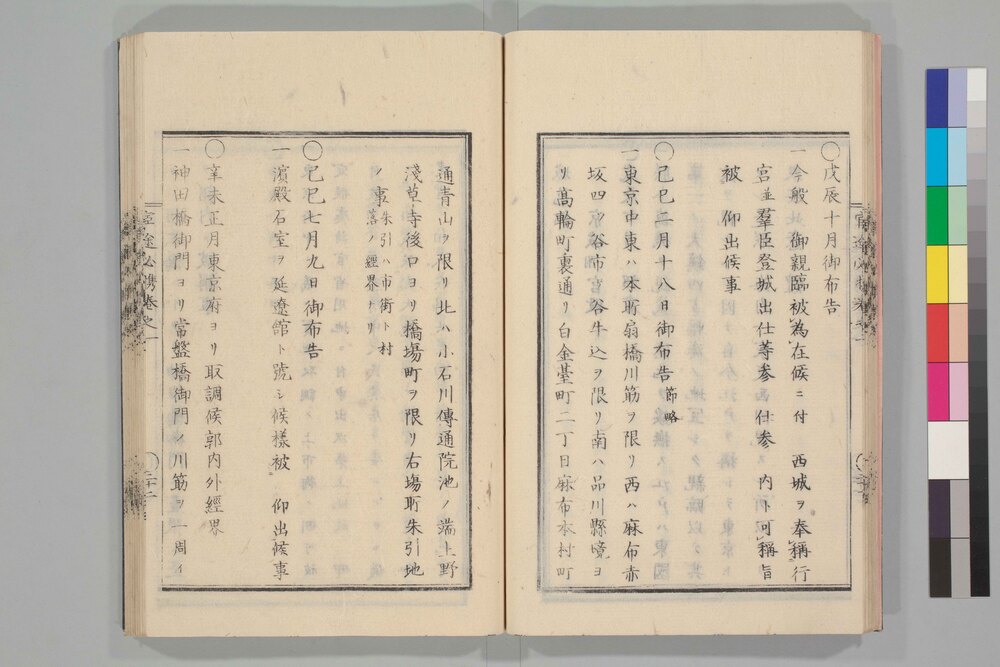 〇戊辰十月御布告
一今般 御親臨被為在候ニ付 西城ヲ奉稱行
宮並羣臣登城出仕等参 仕参 内ト可稱旨
被 仰出候事
〇己巳二月十八日御布告節略
一東京中東ハ本所扇橋川筋ヲ限リ西ハ麻布赤
坂四ツ谷市ヶ谷牛込ヲ限リ南ハ品川縣境ヨ
リ高輪町裏通リ白金臺町二丁目麻布本村町
通青山ヲ限リ北ハ小石川傳通院池ノ端上野
淺草寺後口ヨリ橋場町ヲ限リ右場所朱引地
ノ事朱引ハ市街ト村
落ノ經界ナリ
〇己巳七月九日御布告
一濱殿石室ヲ延遼舘ト號シ候樣被 仰出候事
〇辛未正月東京府ヨリ取調候郭内外經界
一神田橋御門ヨリ常盤橋御門ノ川筋ヲ一周イ
官途必携巻之一
二十二